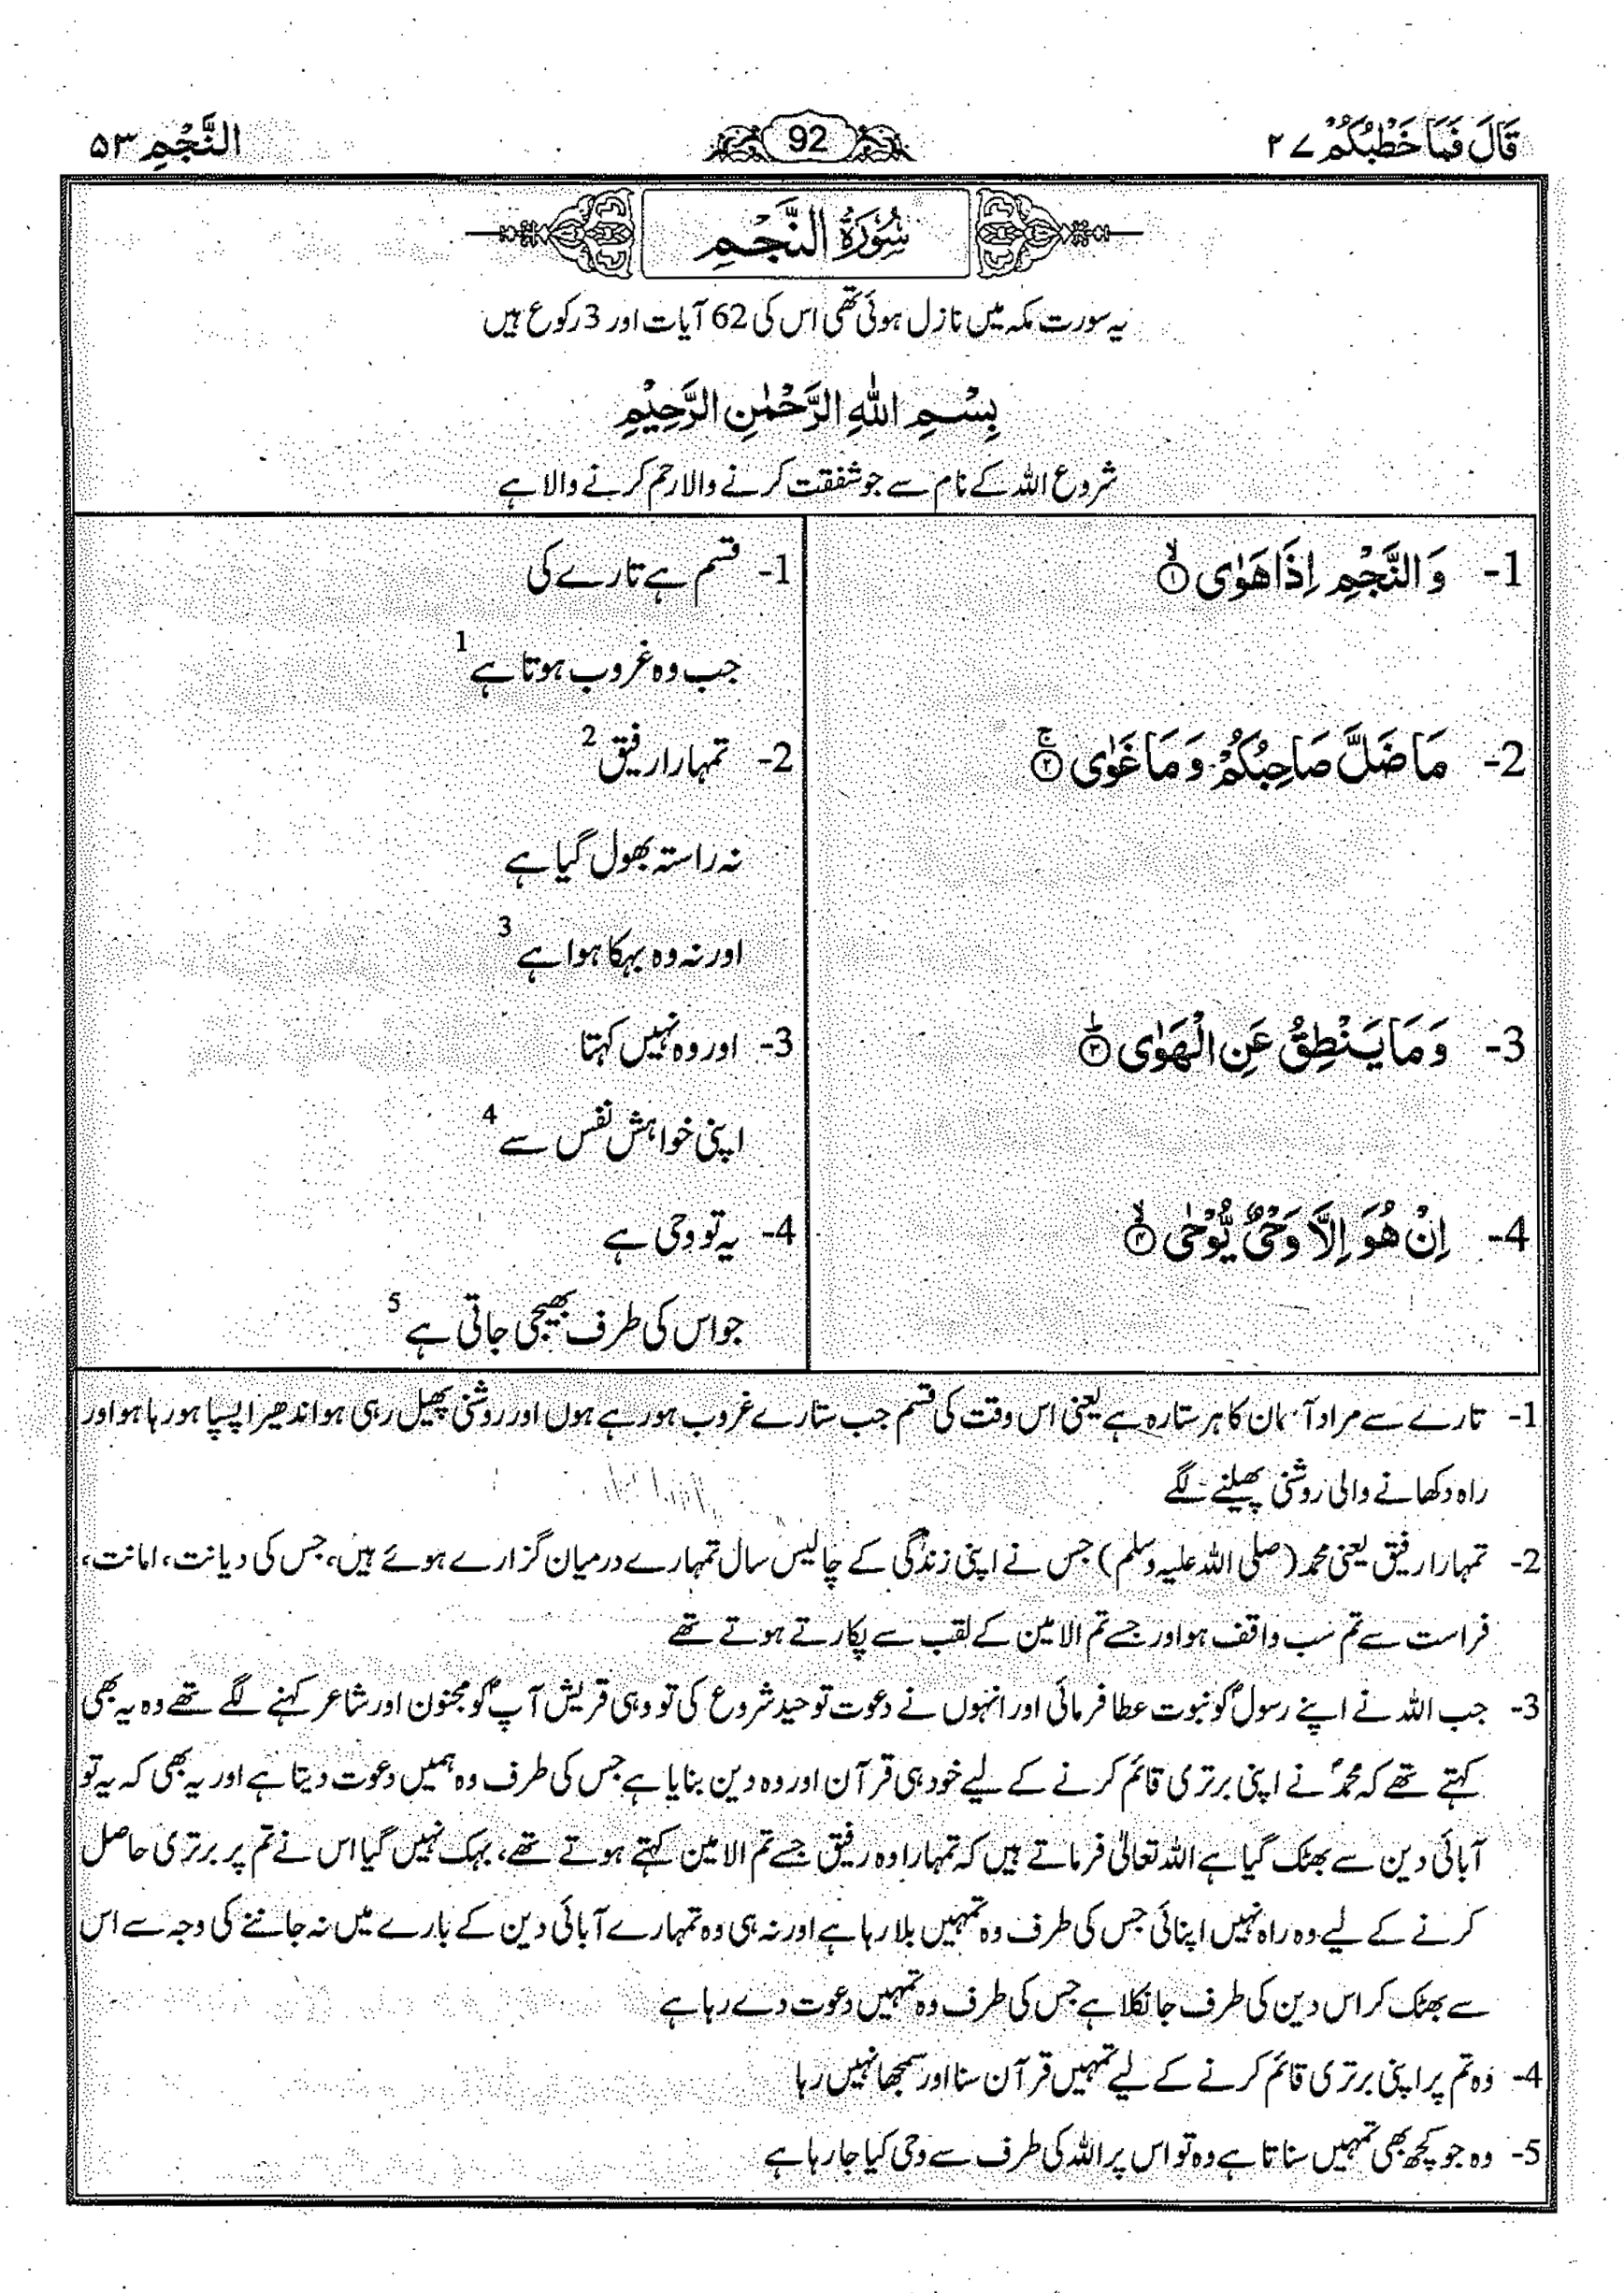 قَالَ فَمَا خَطْبُكُمْ ٢٧
92
النَّجْمِ ٥٣
سُوْرَةُ النَّجْمِ
یہ سورت مکہ میں نازل ہوئی تھی اس کی 62 آیات اور 3 رکوع ہیں
بِسْمِ اللّٰهِ الرَّحْمٰنِ الرَّحِيْمِ
شروع اللہ کے نام سے جو شفقت کرنے والا رحم کرنے والا ہے
1- وَالنَّجْمِ اِذَا هَوٰى ۙ﴿١﴾
2- مَا ضَلَّ صَاحِبُكُمْ وَمَا غَوٰى ۚ﴿٢﴾
3- وَمَا يَنْطِقُ عَنِ الْهَوٰى ؕ﴿٣﴾
4- اِنْ هُوَ اِلَّا وَحْیٌ یُّوْحٰى ۙ﴿٤﴾
1- قسم ہے تارے کی
جب وہ غروب ہوتا ہے 1
2- تمہارا رفیق 2
نہ راستہ بھول گیا ہے
اور نہ وہ بہکا ہوا ہے 3
3- اور وہ نہیں کہتا
اپنی خواہش نفس سے 4
4- یہ تو وحی ہے
جو اس کی طرف بھیجی جاتی ہے 5
1- تارے سے مراد آسمان کا ہر ستارہ ہے یعنی اس وقت کی قسم جب ستارے غروب ہو رہے ہوں اور روشنی پھیل رہی ہو اندھیرا پسپا ہو رہا ہو اور
راہ دکھانے والی روشنی پھیلنے لگے
2- تمہارا رفیق یعنی محمد (صلی اللہ علیہ وسلم) جس نے اپنی زندگی کے چالیس سال تمہارے درمیان گزارے ہوئے ہیں، جس کی دیانت، امانت،
فراست سے تم سب واقف ہو اور جسے تم الامین کے لقب سے پکارتے ہوتے تھے
3- جب اللہ نے اپنے رسولؐ کو نبوت عطا فرمائی اور انہوں نے دعوت توحید شروع کی تو وہی قریش آپؐ کو مجنون اور شاعر کہنے لگے تھے وہ یہ بھی
کہتے تھے کہ محمدؐ نے اپنی برتری قائم کرنے کے لیے خود ہی قرآن اور وہ دین بنایا ہے جس کی طرف وہ ہمیں دعوت دیتا ہے اور یہ بھی کہ یہ تو
آبائی دین سے بھٹک گیا ہے اللہ تعالیٰ فرماتے ہیں کہ تمہارا وہ رفیق جسے تم الامین کہتے ہوتے تھے، بہک نہیں گیا اس نے تم پر برتری حاصل
کرنے کے لیے وہ راہ نہیں اپنائی جس کی طرف وہ تمہیں بلا رہا ہے اور نہ ہی وہ تمہارے آبائی دین کے بارے میں نہ جاننے کی وجہ سے اس
سے بھٹک کر اس دین کی طرف جا نکلا ہے جس کی طرف وہ تمہیں دعوت دے رہا ہے
4- وہ تم پر اپنی برتری قائم کرنے کے لیے تمہیں قرآن سنا اور سمجھا نہیں رہا
5- وہ جو کچھ بھی تمہیں سناتا ہے وہ تو اس پر اللہ کی طرف سے وحی کیا جا رہا ہے